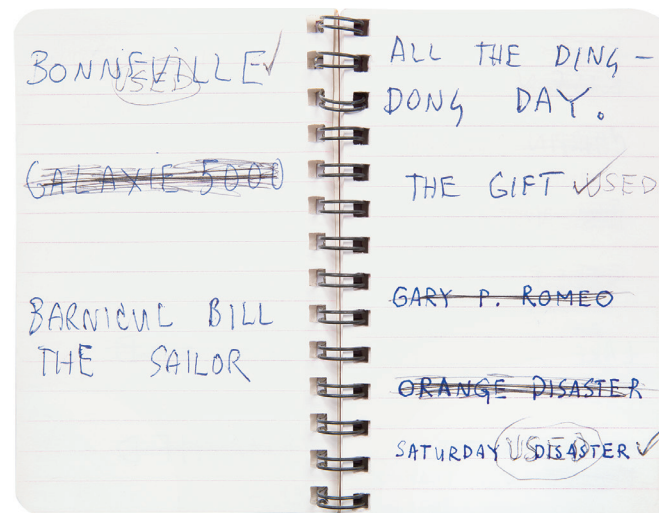 BONNEVILLE ✓
USED
GALAXIE 5000
BARNICUL BILL
THE SAILOR
ALL THE DING-
DONG DAY.
THE GIFT ✓ USED
GARY P. ROMEO
ORANGE DISASTER
SATURDAY DISASTER ✓
USED